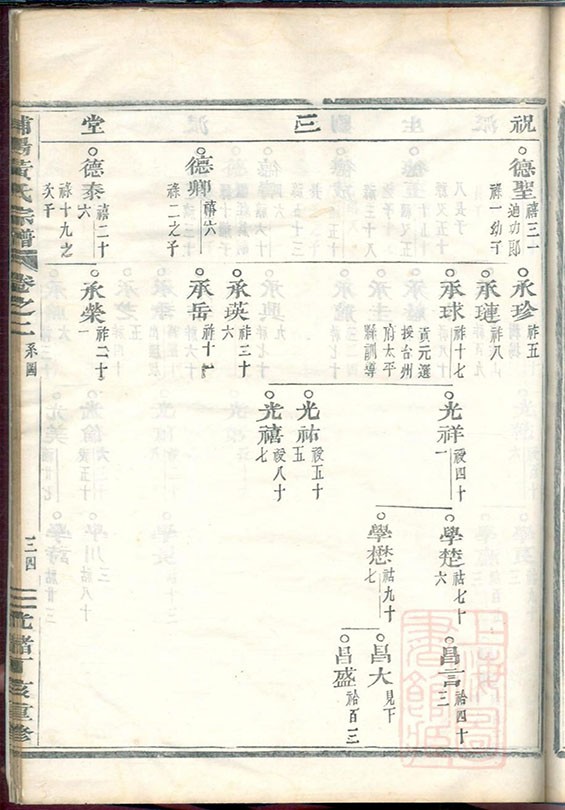 祝三堂
德聖
禧三一
迪功郎
祥一幼子
德卿
禧六
祥二之子
德泰
禧二十六
祿十九之次子
承珍
祚五
承璉
祚八
承球
祚十七
貢元選
授台州
府太平
縣訓導
承瑛
祚三十六
承岳
祚十
承榮
祚二十一
光祥
祾四十一
光祐
祾五十五
光禧
祾八十七
學楚
祜七十六
學懋
祜九十七
昌言
祫四十三
昌大
見下
昌盛
祫百二三
浦陽黃氏宗譜
卷之二
系圖
三四
光緒丁亥重修